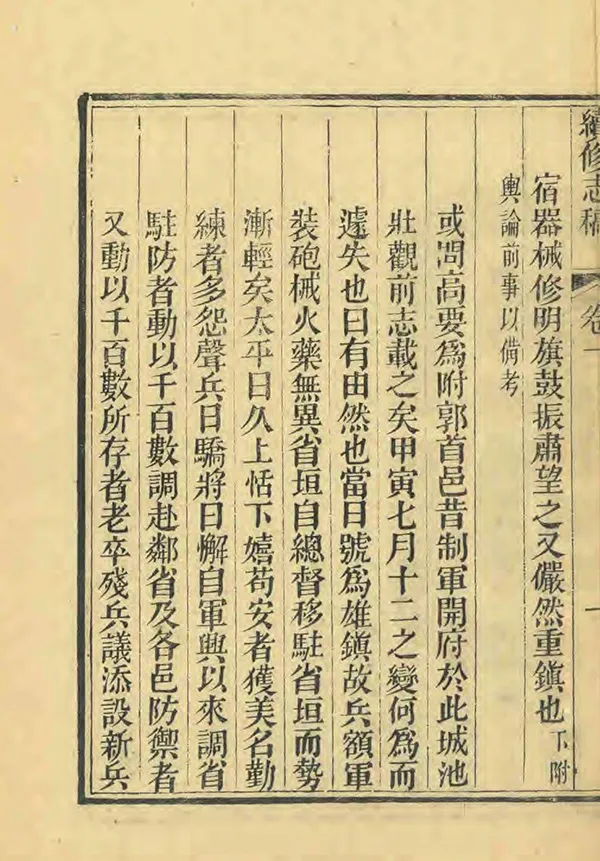 續修志稿
卷一
一
宿器械修明旗鼓振肅望之又儼然重鎮也下附
輿論前事以備考
或問高要為附郭首邑昔制軍開府於此城池
壯觀前志載之矣甲寅七月十二之變何為而
遽失也曰有由然也當日號為雄鎮故兵額軍
裝砲械火藥無異省垣自總督移駐省垣而勢
漸輕矣太平日久上恬下嬉苟安者獲美名勤
練者多怨聲兵日驕將日懈自軍興以來調省
駐防者動以千百數調赴鄰省及各邑防禦者
又動以千百數所存者老卒殘兵議添設新兵